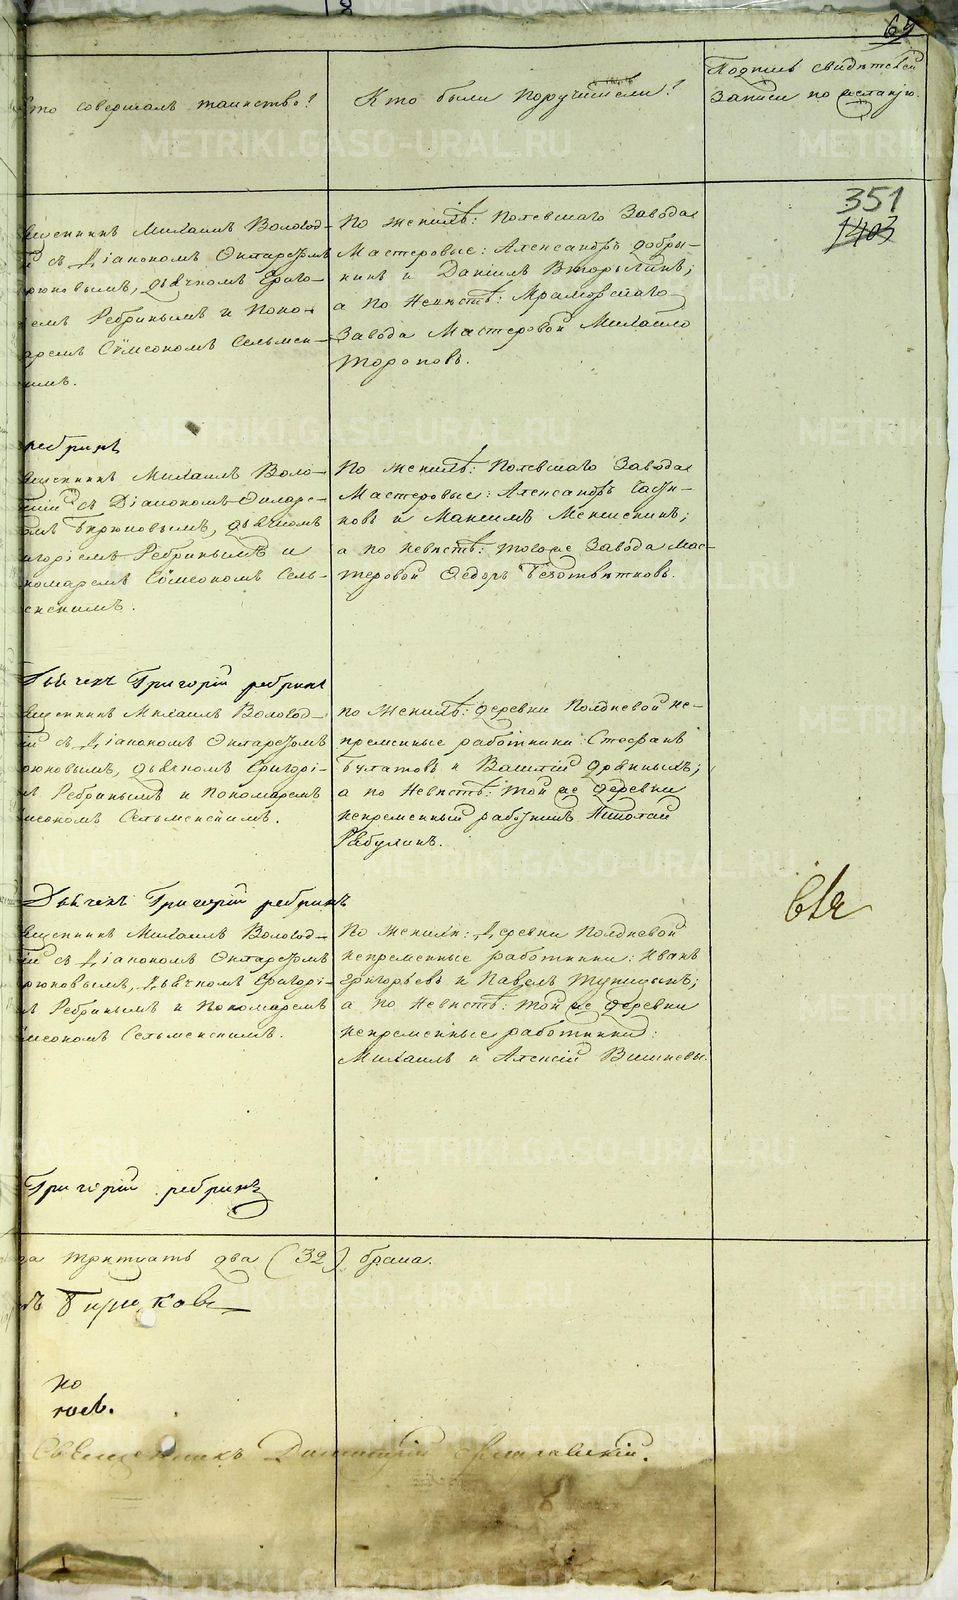 65
Кто совершалъ таинство?
Кто были поручители?
Подпись свидѣтелей
записи по желанію.
351
1403
щенникъ Михаилъ Вологод-
й съ Діакономъ Октаретомъ
рюковымъ, дьячкомъ Григо-
емъ Ребринымъ и Поно-
аремъ Сѵмеономъ Сельмен-
имъ.
По женихѣ: Полевскаго Завода
Мастеровые: Александръ Добры-
нинъ и Данилъ Вторыгинъ;
а по Невѣстѣ: Мраморскаго
Завода Мастеровой Михайло
Тороповъ.
ребринъ
щенникъ Михаилъ Воло-
скій съ Діакономъ
омъ Бирюковымъ, дьячкомъ
игоріемъ Ребринымъ и
номаремъ Сѵмеономъ Сель-
енскимъ.
По женихѣ: Полевскаго Завода
Мастеровые: Александръ
ковъ и Максимъ
а по невѣстѣ: того же Завода Мас-
теровой Ѳедоръ Безотвѣтновъ.
Дьячекъ Григорій ребринъ
щенникъ Михаилъ Вологод-
й съ Діакономъ Октаретомъ
рюковымъ, дьячкомъ Григорі-
мъ Ребринымъ и Пономаремъ
меономъ Сельменскимъ.
по Женихѣ: деревни Полдневой не-
пременные работники: Стефанъ
Булатовъ и Василій
а по Невѣстѣ: той же деревни
непременный работникъ Николай
Рябухинъ.
Дьячекъ Григорій ребринъ
щенникъ Михаилъ Вологод-
й съ Діакономъ Октаретомъ
рюковымъ, Дьячкомъ Григорі-
мъ Ребринымъ и Пономаремъ
меономъ Сельменскимъ.
По женихѣ: Деревни Полдневой
непременные работники: Иванъ
Григорьевъ и Павелъ Тупицынъ;
а по Невѣстѣ: той же деревни
непременные работники:
Михаилъ и Алексій
Григорій ребринъ
тритцать два (32) брака.
Бирюковъ
по
Священникъ Димитрій
METRIKI.GASO-URAL.RU